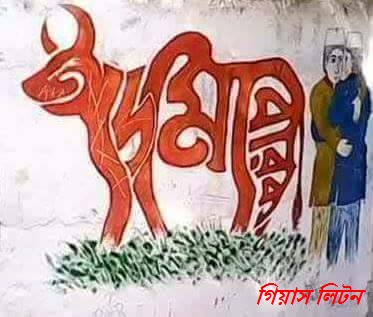 ঈদ মোবারক
গিয়াস লিটন